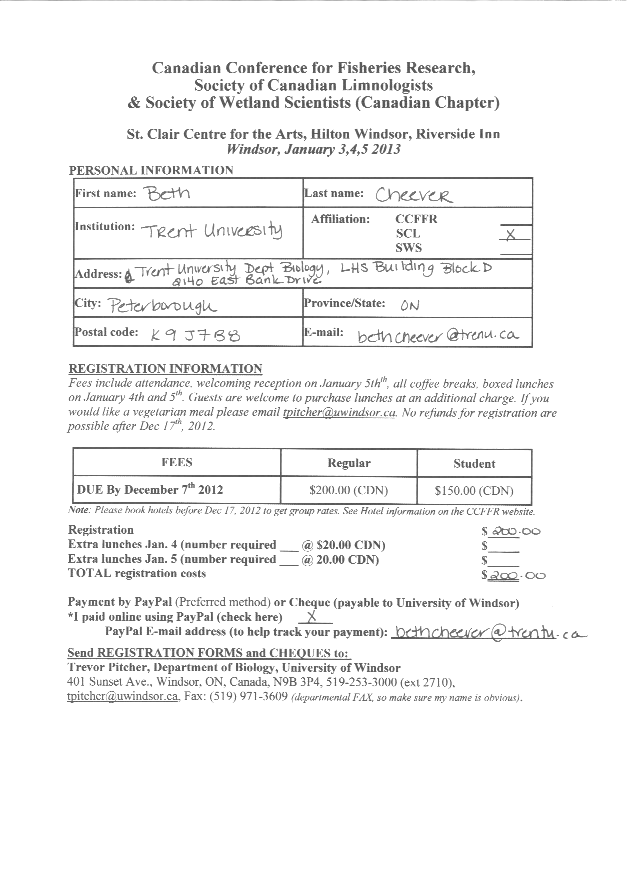 Canadian Conference for Fisheries Research,
Society of Canadian Limnologists
& Society of Wetland Scientists (Canadian Chapter)
St. Clair Centre for the Arts, Hilton Windsor, Riverside Inn
Windsor, January 3,4,5 2013
PERSONAL INFORMATION
First name: Beth Last name: Cheever
Institution: Trent University Affiliation: CCFFR ___
SCL X
SWS ___
Address: Trent University Dept Biology, LHS Building Block D
2140 East Bank Drive
City: Peterborough Province/State: ON
Postal code: K9J7B8 E-mail: bethcheever@trenu.ca
REGISTRATION INFORMATION
Fees include attendance, welcoming reception on January 5th^th, all coffee breaks, boxed lunches
on January 4th and 5^th. Guests are welcome to purchase lunches at an additional charge. If you
would like a vegetarian meal please email tpitcher@uwindsor.ca. No refunds for registration are
possible after Dec 17^th, 2012.
FEES Regular Student
DUE By December 7^th 2012 $200.00 (CDN) $150.00 (CDN)
Note: Please book hotels before Dec 17, 2012 to get group rates. See Hotel information on the CCFFR website.
Registration $ 200.00
Extra lunches Jan. 4 (number required ___ @ $20.00 CDN) $____
Extra lunches Jan. 5 (number required ___ @ 20.00 CDN) $____
TOTAL registration costs $200.00
Payment by PayPal (Preferred method) or Cheque (payable to University of Windsor)
*I paid online using PayPal (check here) X
PayPal E-mail address (to help track your payment): bethcheever@trentu.ca
Send REGISTRATION FORMS and CHEQUES to:
Trevor Pitcher, Department of Biology, University of Windsor
401 Sunset Ave., Windsor, ON, Canada, N9B 3P4, 519-253-3000 (ext 2710),
tpitcher@uwindsor.ca, Fax: (519) 971-3609 (departmental FAX, so make sure my name is obvious).